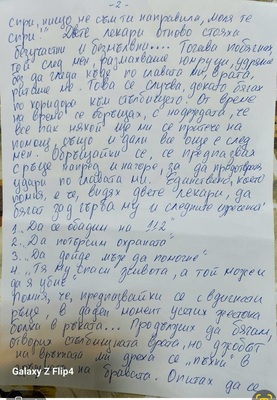 - 2 -
спри, нищо не съм ти направила, моля те
спри." Двете лекари отново стояха
безучастни и безмълвни.... Тогава побягнах,
той след мен, размахваше юмруци, удряше
без да гледа къде по главата ми, врата,
риташе ме. Това се случва, докато бягах
по коридора към стълбището. От време
на време се обръщах, с надеждата, че
все пак някой ще ми се притече на
помощ, също и дали все още е след
мен. Обръщайки се, се предпазвах
с ръце напред и нагоре, за да предотвратя
удари по главата ми. Единствено, което
помня, е че, видях двете лекарки, да
бягат зад гърба му и следните
1. „Да се обадим на 112"
2. „Да потърсим охраната"
3. „Да дойде мъж да помогне"
4. „Тя му спаси живота, а той може
да я убие"
Помня, че, предпазвайки се с вдигнати
ръце, в даден момент усетих жестока
болка в ръката... Продължих да бягам,
отворих стълбищната врата, но
на връхната ми дреха се „пъхна" в
на бравата. Опитах да се
Galaxy Z Flip4